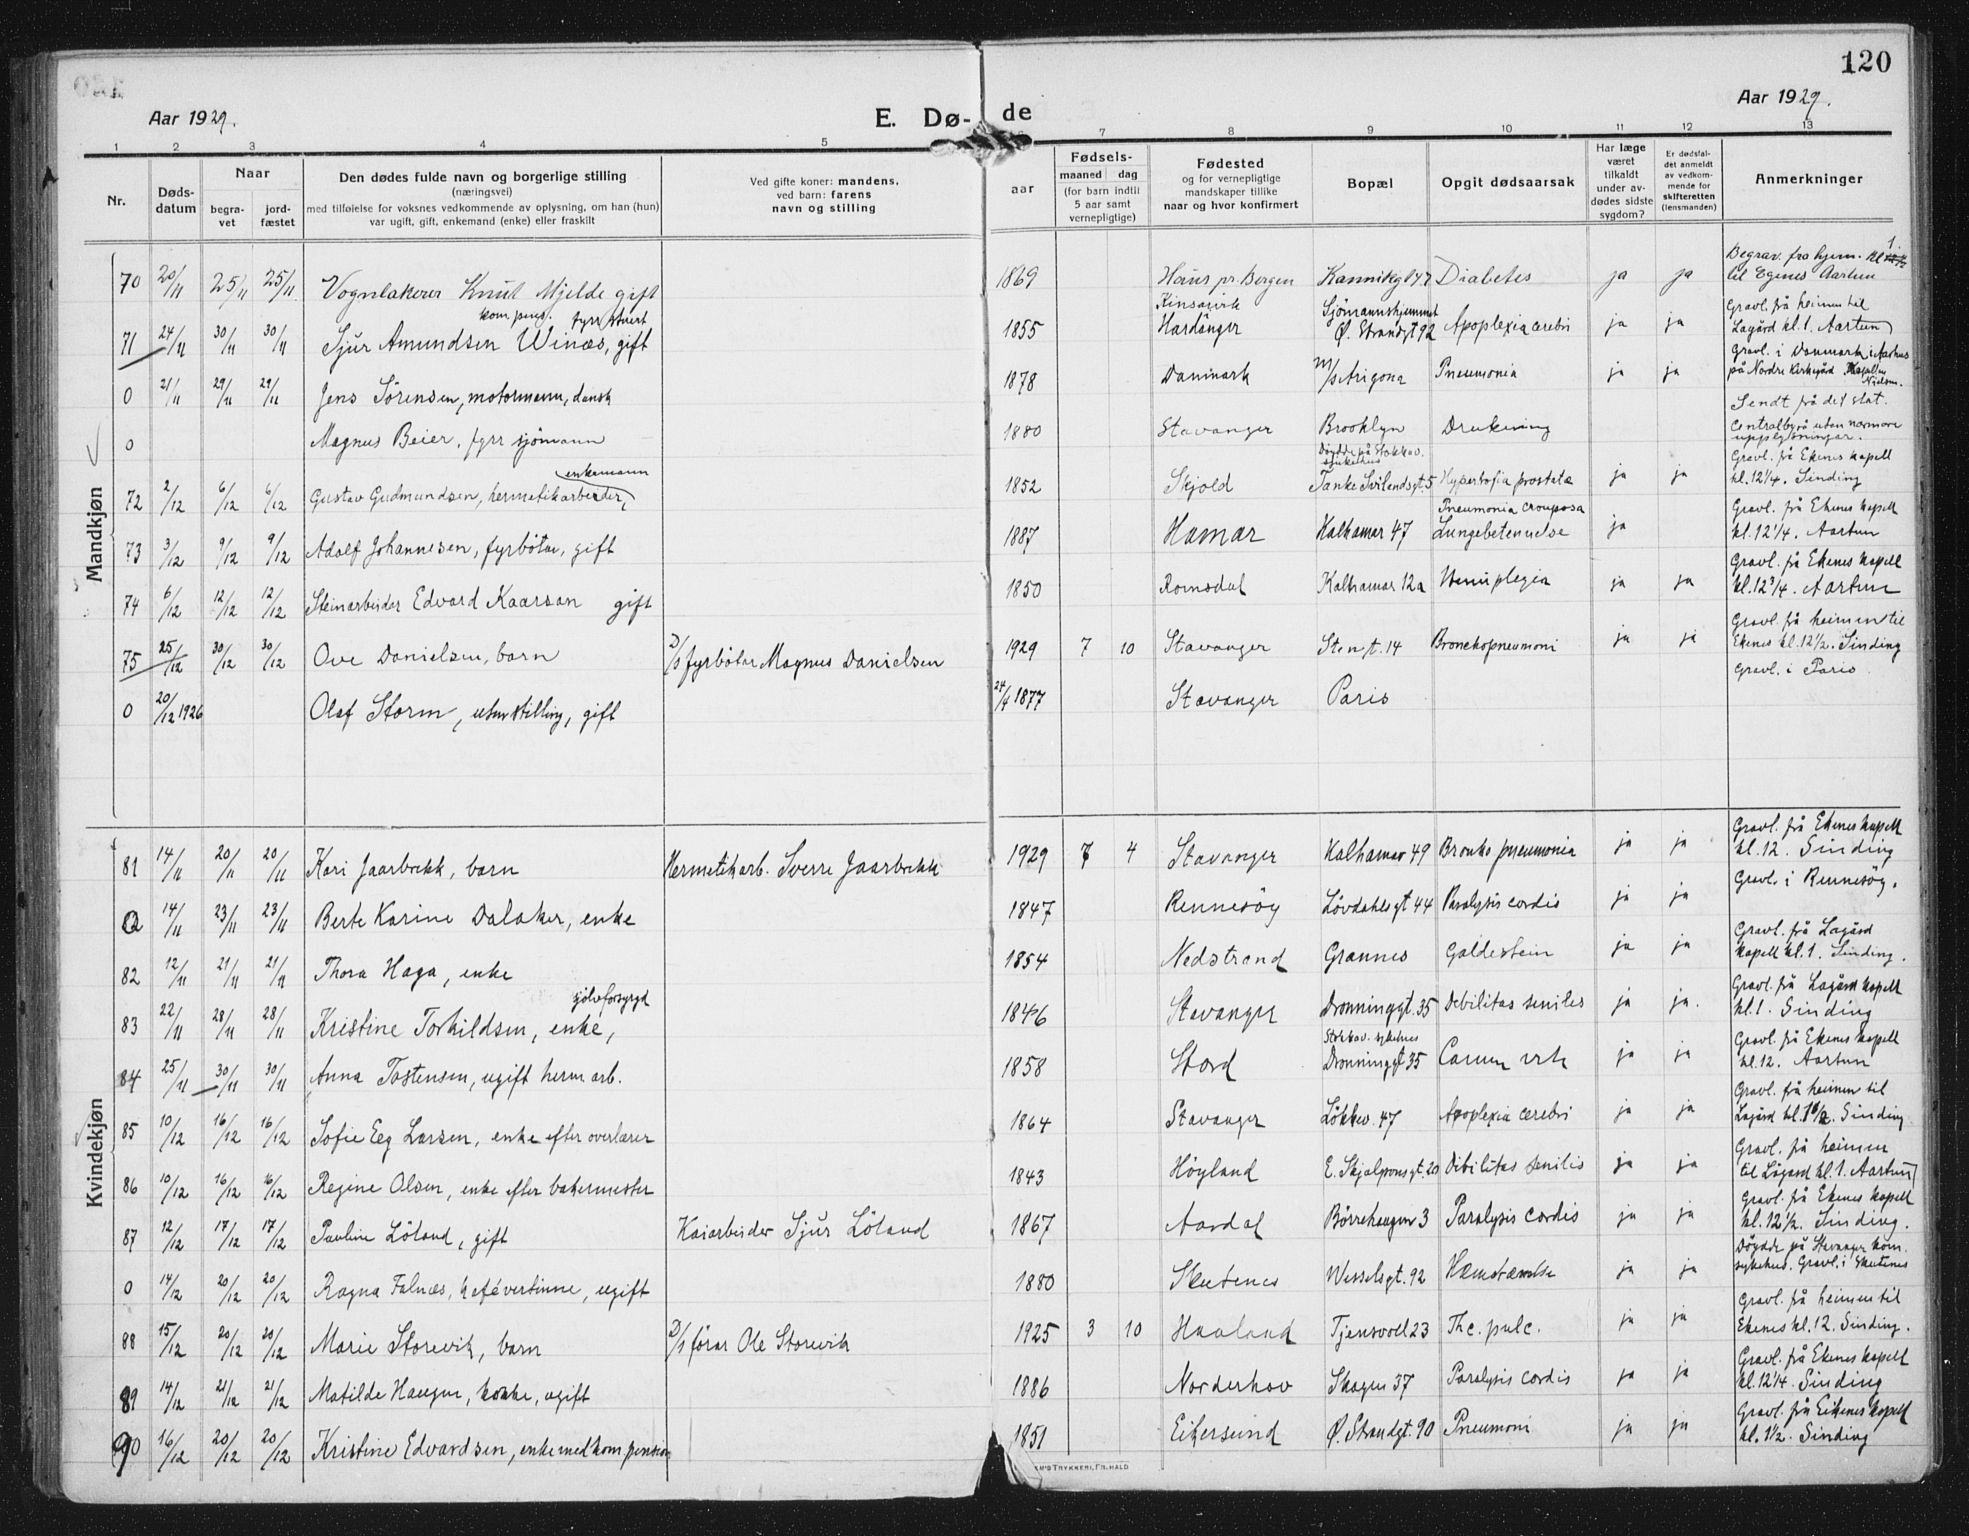 120
Aar 1929.
E. Dø-
de
Aar 1929.
1 2 3 4 5 7 8 9 10 11 12 13
Nr.
Døds-
datum
Naar
begra-
vet
jord-
fæstet
Den dødes fulde navn og borgerlige stilling
(næringsvei)
med tilføielse for voksnes vedkommende av oplysning, om han (hun)
var ugift, gift, enkemand (enke) eller fraskilt
Ved gifte koner: mandens,
ved barn: farens
navn og stilling
aar
Fødsels-
maaned dag
(for barn indtil
5 aar samt
vernepligtige)
Fødested
og for vernepligtige
mandskaper tillike
naar og hvor konfirmert
Bopæl
Opgit dødsaarsak
Har læge
været
tilkaldt
under av-
dødes sidste
sygdom?
Er dødsfal-
det anmeldt
av vedkom-
mende for
skifteretten
(lensmanden)
Anmerkninger
Mandkjøn
70 20/11 25/11 25/11 Vognlakerer Knut Mjelde gift 1869 Haus pr. Bergen Kannikgt 47 Diabetes ja ja Begrav. fra hjem. kl 1
til Egenes Aartun
71 24/11 30/11 30/11 Sjur Amundsen Winæs, gift komp. fyrr stuert 1855 Kinsarvik
Hardanger Sjömannshjemmet
Ø. Strandgt 92 Apoplexia cerebri ja ja Gravl. frå heimen til
Lagård kl. 1. Aartun
0 21/11 29/11 29/11 Jens Sörensen, motormann, dansk 1878 Danmark M/S Arizona Pneumonia ja ja Gravl. i Danmark i Aarhus
på Nordre Kirkegård Kapellet
0 Magnus Beier, fyrr sjömann 1880 Stavanger Brooklyn Drukning Sendt frå det stat.
Centralbyrå uten nærmere
upplysningar.
72 2/12 6/12 6/12 Gustav Gudmundsen, hermetikarbeider, enkemann 1852 Skjold Döydde på Stokkav.
sjukehus
Tanke Svilandsgt. 5 Hypertofia prostata ja ja Gravl. frå Ekenes kapell
kl. 12 1/4. Sinding
73 3/12 9/12 9/12 Adolf Johannesen, fyrbötar, gift 1887 Hamar Kalhamar 47 Pneumonia crouposa
Lungebetennelse ja Gravl. frå Ekenes kapell
kl. 12 1/4. Aartun
74 6/12 12/12 12/12 Steinarbeider Edvard Kaarsan gift 1850 Romsdal Kalhamar 12a Hemiplegia ja ja Gravl. frå Ekenes kapell
kl. 12 3/4. Aartun
75 25/12 30/12 30/12 Ove Danielsen, barn D/S fyrbötar Magnus Danielsen 1929 7 10 Stavanger Stengt. 14 Bronchopneumoni ja ja Gravl. frå heimen til
Ekenes kl. 12 1/2. Sinding
0 20/12 1926 Olaf Storm, uten stilling, gift 24/4 1877 Stavanger Paris Gravl. i Paris
Kvindekjøn
81 14/11 20/11 20/11 Kari Jaarbekk, barn Hermetikarb. Sverre Jaarbekk 1929 7 4 Stavanger Kalhamar 49 Bronko pneumonia ja ja Gravl. frå Ekenes kapell
kl. 12. Sinding
0 14/11 23/11 23/11 Berte Karine Dalaker, enke 1847 Rennesöy Lövdahlsgt 44 Paralysis cordis ja ja Gravl. i Rennesöy.
82 12/11 21/11 21/11 Thora Haga, enke 1854 Nedstrand Grannes Galdestein ja ja Gravl. frå Lagård
kapell kl. 1. Sinding.
83 22/11 28/11 28/11 Kristine Torkildsen, enke, sjölvforsyrgd 1846 Stavanger Dronninggt. 35 Debilitas seniles ja ja. Gravl. frå Lagård kapell
kl. 1. Sinding
84 25/11 30/11 30/11 Anna Tostensen, ugift herm arb. 1858 Stord Stokkav. sykehus
Dronninggt 35 ja ja Gravl. frå Ekenes kapell
kl. 12. Aartun
85 10/12 16/12 16/12 Sofie Eeg Larsen, enke efter overlærer 1864 Stavanger Lökkev. 47 Apoplexia cerebri ja ja Gravl. frå heimen til
Lagård kl. Sinding
86 10/12 16/12 16/12 Regine Olsen, enke efter bakermester 1843 Höyland E. Skjalgsonsgt. 20 Dibilitas senilis ja ja Gravl. frå heimen
til Lagård kl. 1. Aartun
87 12/12 17/12 17/12 Pauline Löland, gift Kaiarbeider Sjur Löland 1867 Aardal Börrehaugen 3 Paralysis Cordis ja ja Gravl. frå Ekenes kapell
kl. 12 1/2. Sinding.
0 14/12 20/12 20/12 Ragna Falnæs, kafévertinne, ugift 1880 Skutenes Wesselsgt. 92 ja ja Döydde på Stavanger kom.
sykehus. Gravl. i Skutenes
88 15/12 20/12 20/12 Marie Storevik, barn D/S förar Ole Storevik 1925 3 10 Haaland Tjensvoll 23 Tbc. pulc. ja ja Gravl. frå heimen til
Ekenes kl. 12. Sinding.
89 14/12 21/12 21/12 Matilde Haugen, kokke, ugift 1886 Norderhov Skagen 37 Paralysis cordis ja ja Gravl. frå Ekenes kapell
kl. 12 1/4. Sinding
90 16/12 20/12 20/12 Kristine Edvardsen, enke med kom. pension 1851 Eikersund Ø. Strandgt. 90 Pneumoni ja ja Gravl. frå Eikenes kapell
kl. 1/2. Sinding
TRYKKERI, FR. HALD